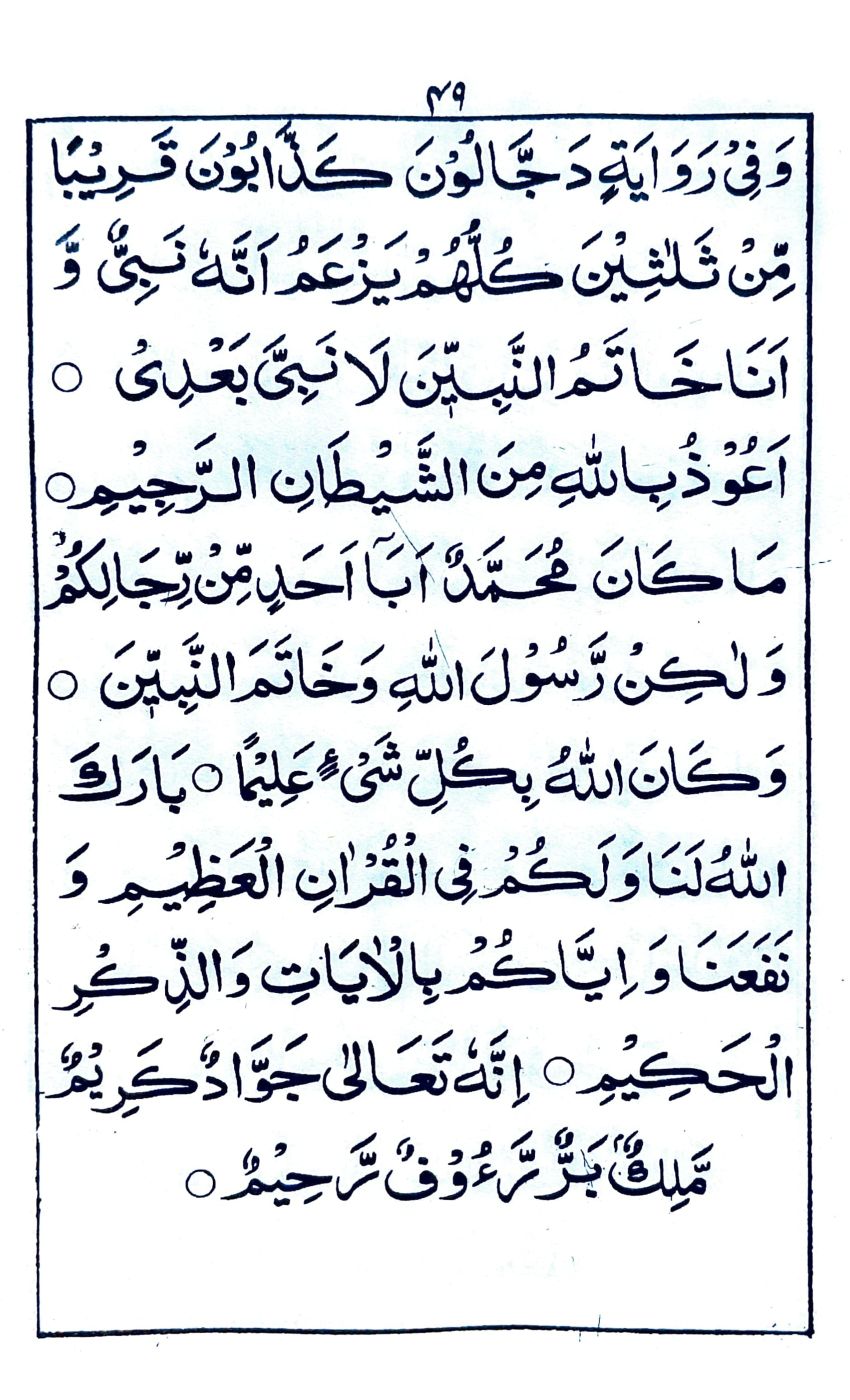 ۴۹
وَفِیْ رَوَایَةٍ دَجَّالُوْنَ کَذَّابُوْنَ قَرِیْبًا
مِّنْ ثَلٰثِیْنَ کُلُّهُمْ یَزْعَمُ اَنَّهٗ نَبِیٌّ وَّ
اَنَا خَاتَمُ النَّبِیّٖنَ لَا نَبِیَّ بَعْدِیْ ○
اَعُوْذُ بِاللّٰهِ مِنَ الشَّیْطَانِ الرَّجِیْمِ ○
مَا کَانَ مُحَمَّدٌ اَبَآ اَحَدٍ مِّنْ رِّجَالِکُمْ
وَلٰکِنْ رَّسُوْلَ اللّٰهِ وَخَاتَمَ النَّبِیّٖنَ ○
وَکَانَ اللّٰهُ بِکُلِّ شَیْءٍ عَلِیْمًا ○ بَارَكَ
اللّٰهُ لَنَا وَلَکُمْ فِی الْقُرْاٰنِ الْعَظِیْمِ وَ
نَفَعَنَا وَ اِیَّاکُمْ بِالْاٰیَاتِ وَالذِّکْرِ
الْحَکِیْمِ ○ اِنَّهٗ تَعَالٰی جَوَّادٌ کَرِیْمٌ
مَّلِكٌ بَرٌّ رَّءُوْفٌ رَّحِیْمٌ ○